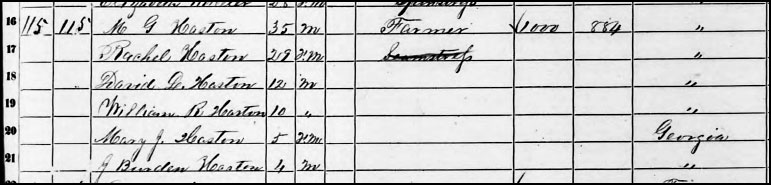 16 115 115 M G Haston 35 M Farmer 1000 884 "
17 Rachel Haston 29 Fm Seamstress "
18 David G. Haston 12 m "
19 William R Haston 10 " "
20 Mary J. Haston 5 Fm Georgia
21 J Burden Haston 4 M "